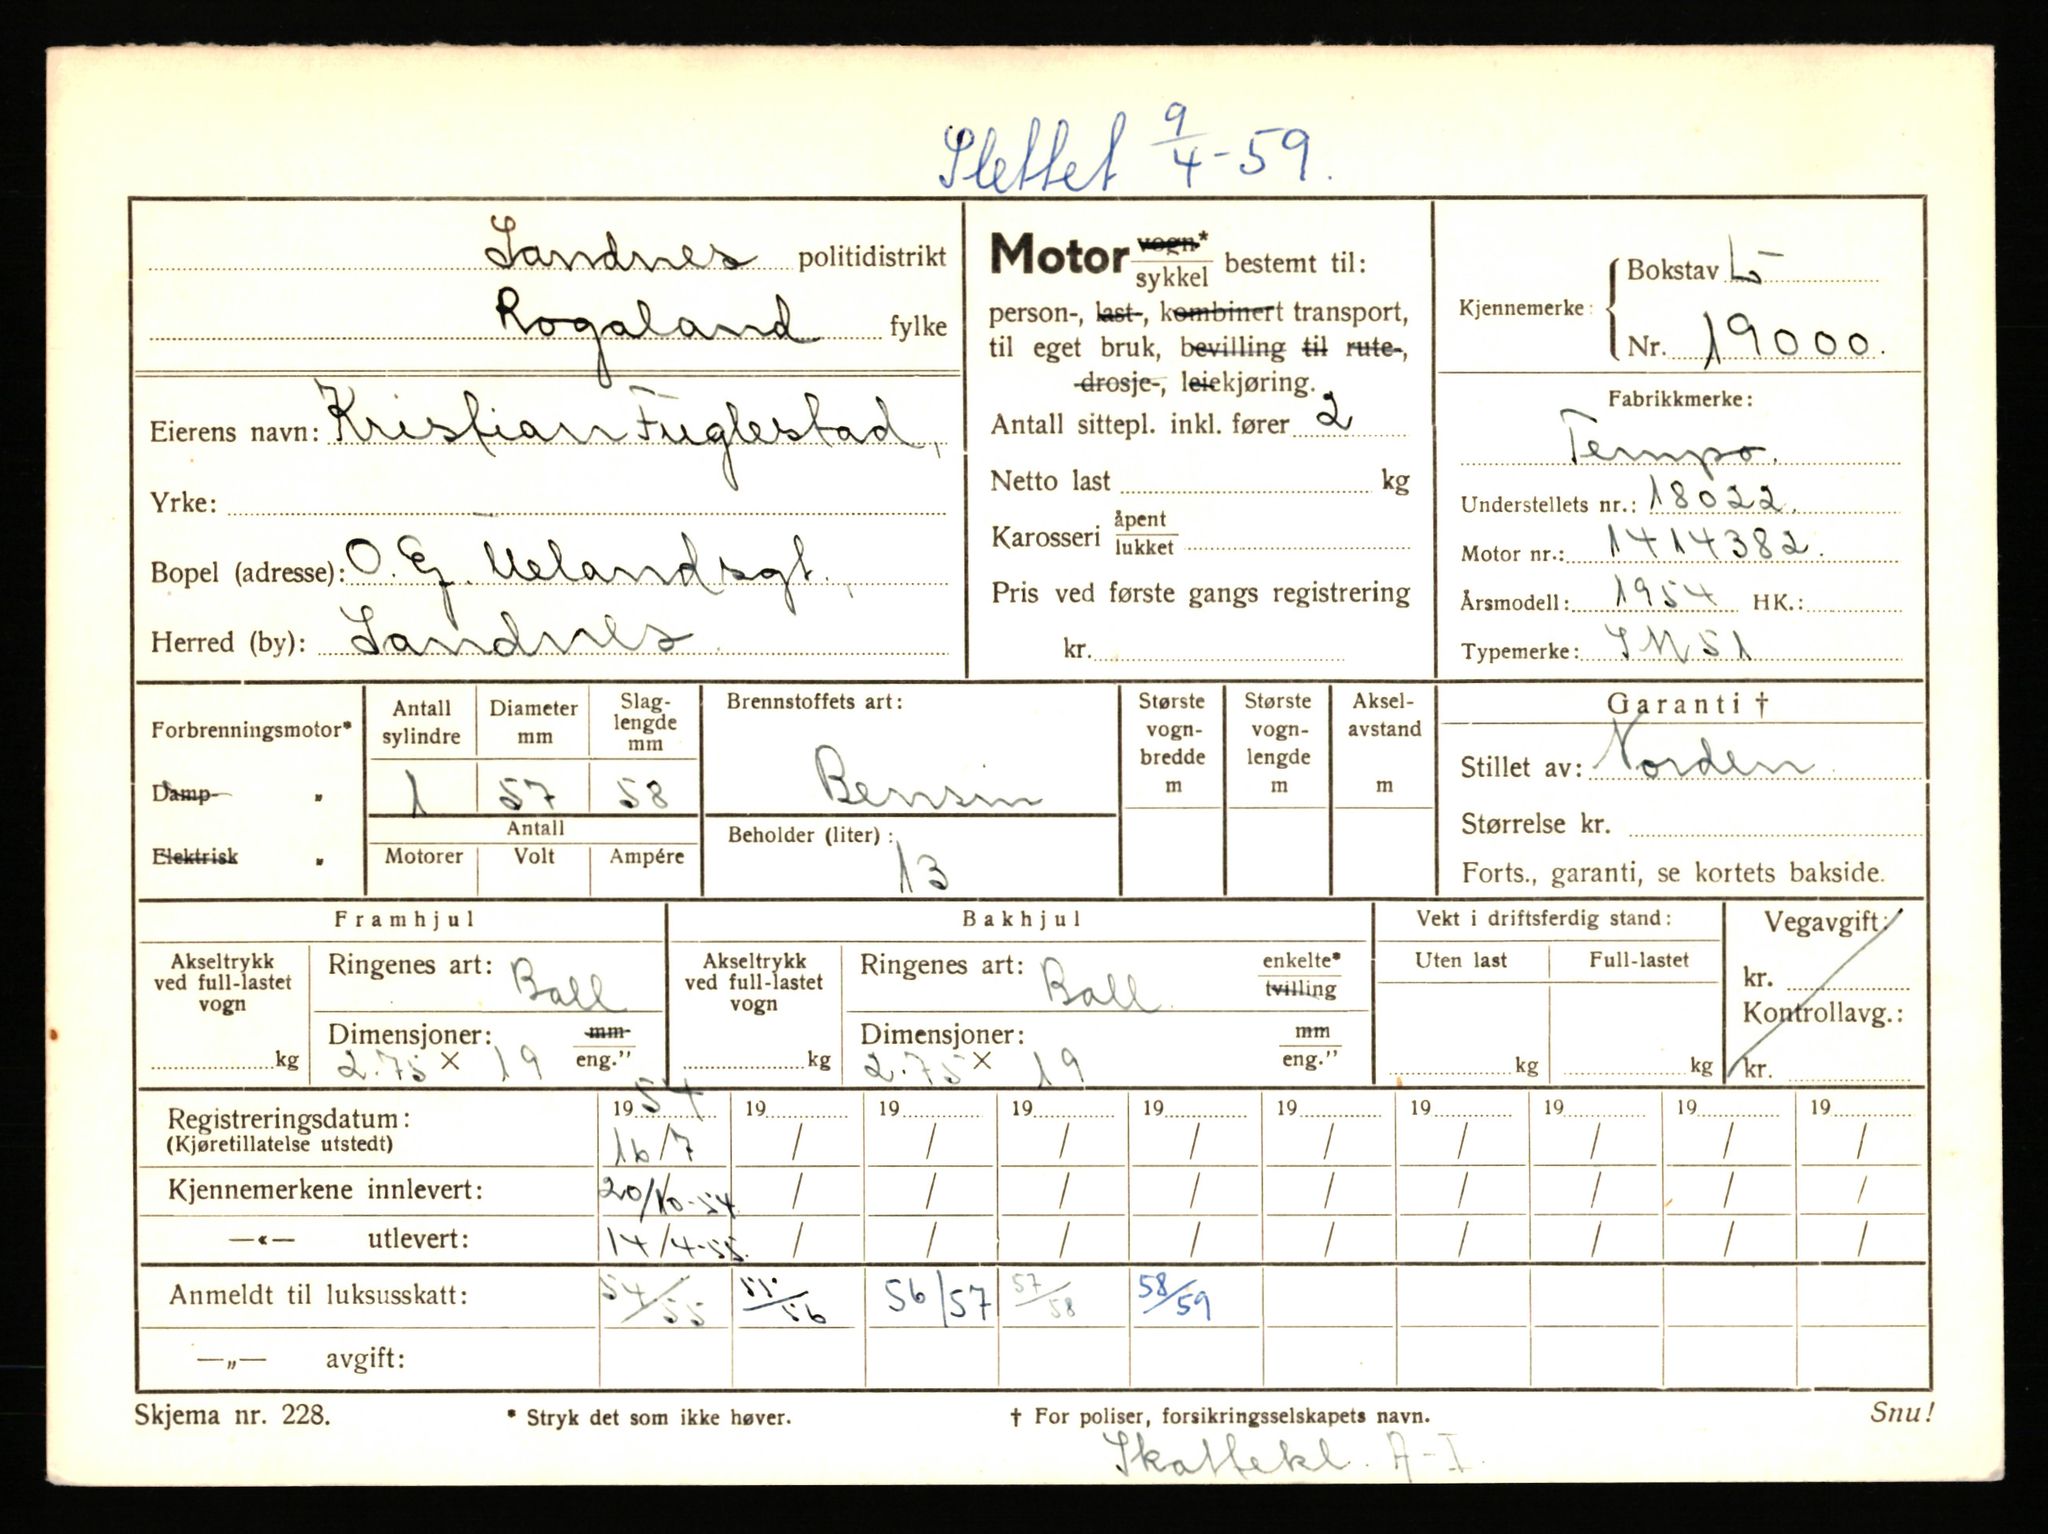 Slettet 9/4-59.
Sandnes politidistrikt
Rogaland fylke
Eierens navn: Kristian Fuglestad,
Yrke:
Bopel (adresse): O. G. Uelandsgt.,
Herred (by): Sandnes.
Motor vogn* / sykkel bestemt til:
person-, last-, kombinert transport,
til eget bruk, bevilling til rute-,
drosje-, leiekjøring.
Antall sittepl. inkl. fører 2
Netto last kg
Karosseri åpent / lukket
Pris ved første gangs registrering
kr.
Kjennemerke: Bokstav L
Nr. 19000.
Fabrikkmerke:
Tempo.
Understellets nr.: 18022.
Motor nr.: 1414382.
Årsmodell: 1954 HK.:
Typemerke: SM 51
Forbrenningsmotor*
Damp- „
Elektrisk „
Antall sylindre 1
Diameter mm 57
Slaglengde mm 58
Antall
Motorer Volt Ampére
Brennstoffets art:
Bensin
Beholder (liter):
13
Største vognbredde m
Største vognlengde m
Akselavstand m
Garanti †
Stillet av: Norden.
Størrelse kr.
Forts., garanti, se kortets bakside.
Framhjul
Akseltrykk ved full-lastet vogn
kg
Ringenes art: Ball
Dimensjoner: mm / eng."
2.75 × 19
Bakhjul
Akseltrykk ved full-lastet vogn
kg
Ringenes art: Ball. enkelte* / tvilling
Dimensjoner: mm / eng."
2.75 × 19
Vekt i driftsferdig stand:
Uten last Full-lastet
kg kg
Vegavgift:
kr.
Kontrollavg.:
kr.
Registreringsdatum: 19 54 19 19 19 19 19 19 19 19 19
(Kjøretillatelse utstedt) 16/7 / / / / / / / / /
Kjennemerkene innlevert: 20/10-54 / / / / / / / / /
—«— utlevert: 14/4-55. / / / / / / / / /
Anmeldt til luksusskatt: 54/55 55/56 56/57 57/58 58/59
—„— avgift:
Skjema nr. 228. * Stryk det som ikke høver. † For poliser, forsikringsselskapets navn. Snu!
Skattekl. A-I.